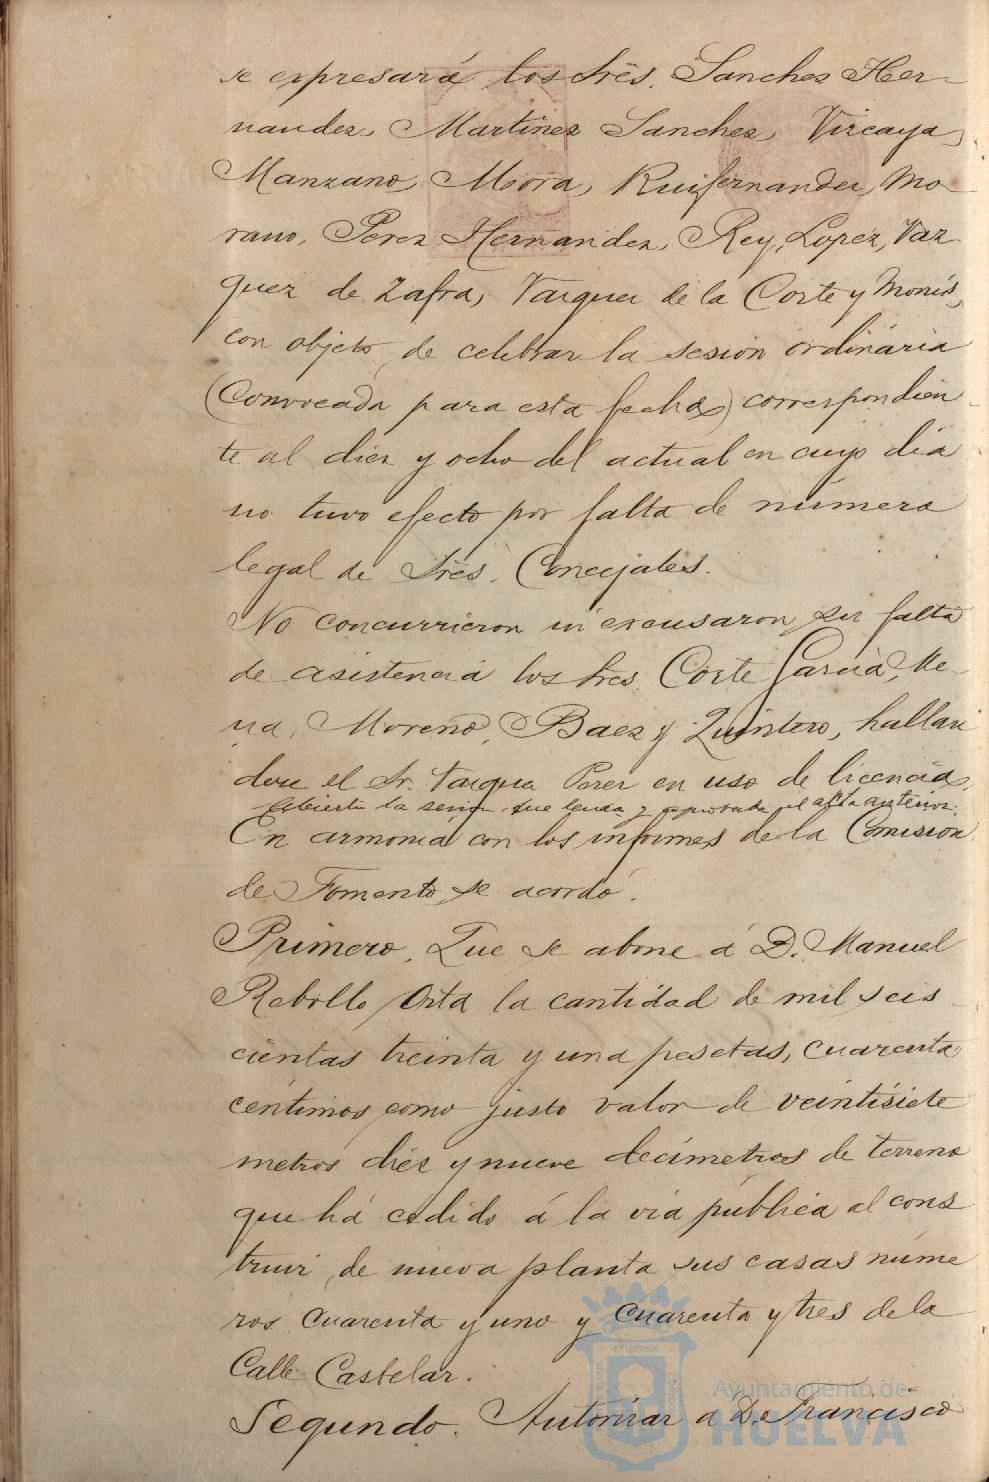 se expresará los Srês. Sanchez Her-
nandez, Martinez Sanchez, Vizcaya,
Manzano, Mora, Ruifernandez, Mo-
rano, Perez Hernandez, Rey, Lopez, Vaz
quez de Zafra, Vazquez de la Corte y Monís,
con objeto de celebrar la sesion ordinária
(convocada para esta fecha) correspondien-
te al diez y ocho del actual en cuyo dia
no tuvo efecto por falta de número
legal de Srês. Concejales.
No concurrieron ni excusaron su falta
de asistencia los Sres. Corte Garcia, Me-
na, Moreno, Baez y Quintero, hallan
dose el Sr. Vazquez Perez en uso de licencia.
Abierta la sesion fue leida y aprobada el acta anterior.
En armonia con los informes de la Comision
de Fomento se acordó.
Primero. Que se abone á D. Manuel
Rebollo Orta la cantidad de mil seis
cientas treinta y una pesetas, cuarenta
centimos como justo valor de veintisiete
metros diez y nueve decimetros de terreno
que há cedido á la via pública al cons
truir de nueva planta sus casas núme
ros cuarenta y uno y cuarenta y tres de la
Calle Castelar.
Segundo. Autorizar á D. Francisco
Ayuntamiento de
HUELVA